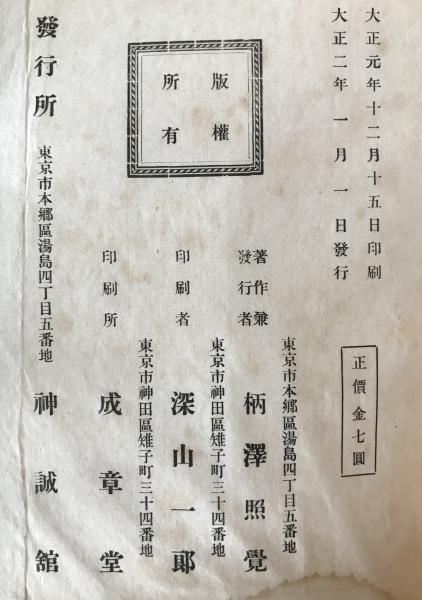 大正元年十二月十五日印刷
大正二年一月一日發行
正價金七圓
版權
所有
東京市本鄕區湯島四丁目五番地
著作兼
發行者
柄澤照覺
東京市神田區雉子町三十四番地
印刷者
深山一郞
東京市神田區雉子町三十四番地
印刷所
成章堂
發行所
東京市本鄕區湯島四丁目五番地
神誠館